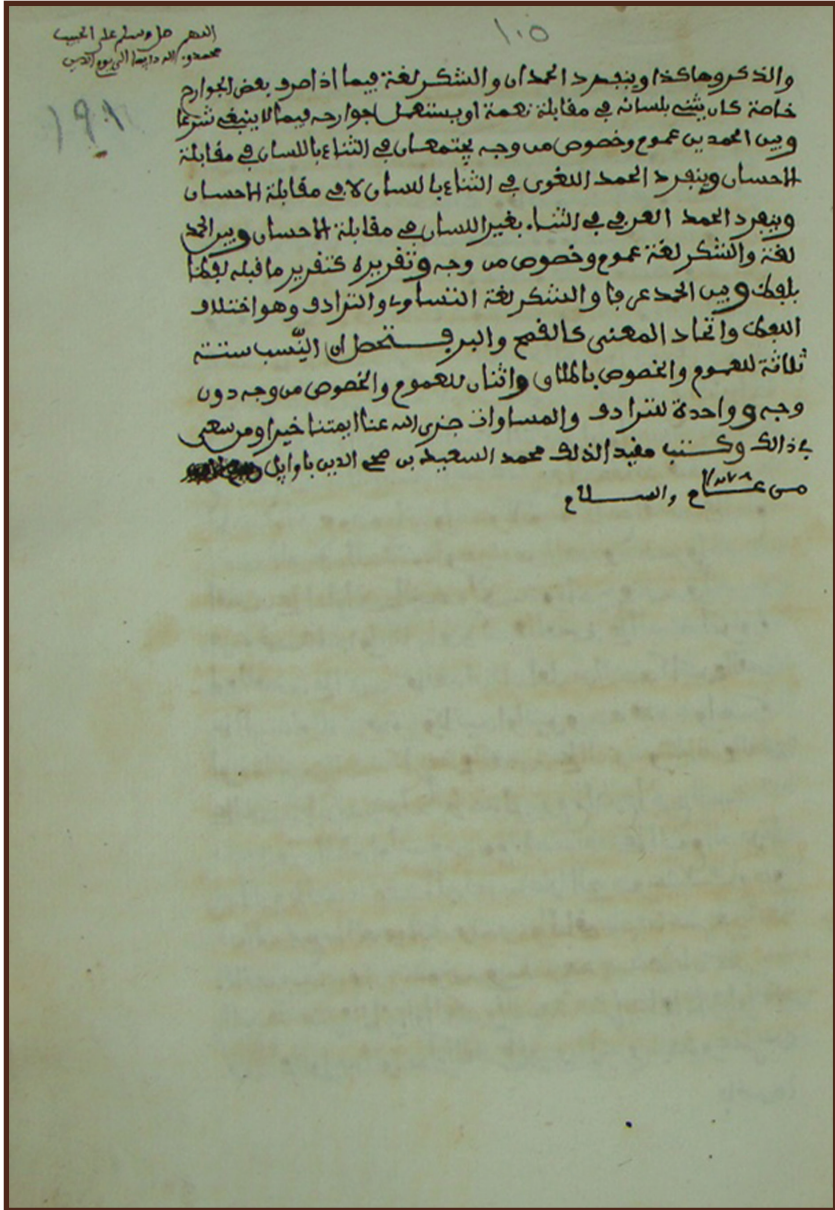 ١٠٥
اللهم صل وسلم على الحبيب
محمد وءاله دايما الى يوم الدين
١٩١
والذكر وهاكذا وينفرد الحمدان والشكر لغة فيما اذا صرف بعض الجوارح
خاصة كان يثنى بلسانه في مقابلة نعمة او يستعمل جوارحه فيما لا ينبغي شرعا
وبين الحمدين عموم وخصوص من وجه يجتمعان في الثناء باللسان في مقابلة
الاحسان وينفرد الحمد اللغوى في الثناء باللسان لا في مقابلة الاحسان
وينفرد الحمد العرفي في الثناء بغير اللسان في مقابلة الاحسان وبين الحمد
لغة والشكر لغة عموم وخصوص من وجه وتقريره كتقرير ما قبله لفظا
بلفظ وبين الحمد عرفا والشكر لغة التساوى والترادف وهو اختلاف
اللفظ واتحاد المعنى كالقمح والبر فتحصل ان النسب ستة
ثلاثة للعموم والخصوص بالمطلق واثنان للعموم والخصوص من وجه دون
وجه وواحدة للترادف والمساوات جزى الله عنا ايمتنا خيرا ومن سعى
في ذالك وكتب مفيد الذلك محمد السعيد بن محي الدين باوايل
من عام والسلام